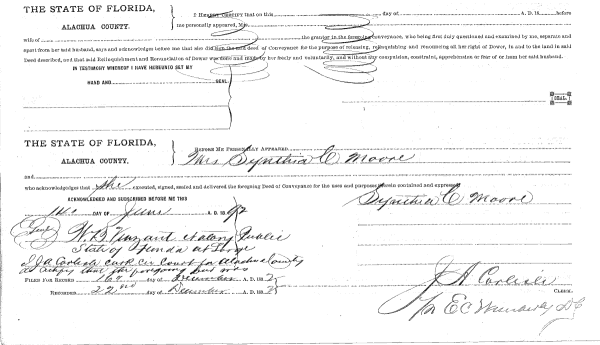 THE STATE OF FLORIDA,
ALACHUA COUNTY.
I HEREBY CERTIFY that on this day of A. D. 18 before
me personally appeared, Mrs.
wife of the grantor in the foregoing conveyance, who being first duly questioned and examined by me, separate and
apart from her said husband, says and acknowledges before me that she did the said deed of Conveyance for the purpose of releasing, relinquishing and renouncing all her right of Dower, in and to the land in said
Deed described, and that said Relinquishment and Renunciation of Dower was done and made by her freely and voluntarily, and without any compulsion, constraint, apprehension or fear of or from her said husband.
IN TESTIMONY WHEREOF I HAVE HEREUNTO SET MY
HAND AND SEAL
SEAL
THE STATE OF FLORIDA,
ALACHUA COUNTY.
BEFORE ME PERSONALLY APPEARED
Mrs Synthia C Moore
and
who acknowledges that she executed, signed, sealed and delivered the foregoing Deed of Conveyance for the uses and purposes therein contained and expressed
Synthia C. Moore
ACKNOWLEDGED AND SUBSCRIBED BEFORE ME THIS
DAY OF June A. D. 18
W. B. Notary Public
State of Florida at Large
J A Carlisle Clerk Cir Court for Alachua County
do certify that the foregoing was
FILED FOR RECORD 16th day of December A. D. 18
RECORDED 22nd day of December A. D. 18
J A Carlisle
CLERK.
E C DC